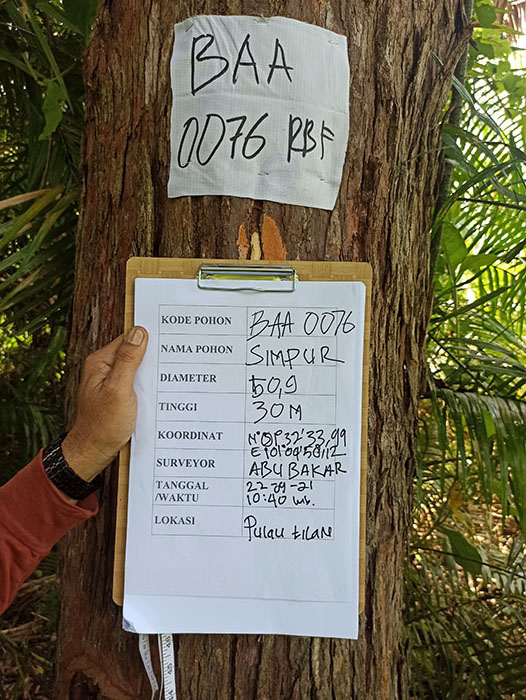 BAA
0076 RBF
KODE POHON BAA 0076
NAMA POHON SIMPUR
DIAMETER 50,9
TINGGI 30 M
KOORDINAT N°00°32'33,99
E 101°04'58,12
SURVEYOR ABU BAKAR
TANGGAL 22-09-21
/WAKTU 10:40 wib.
LOKASI Pulau tilan